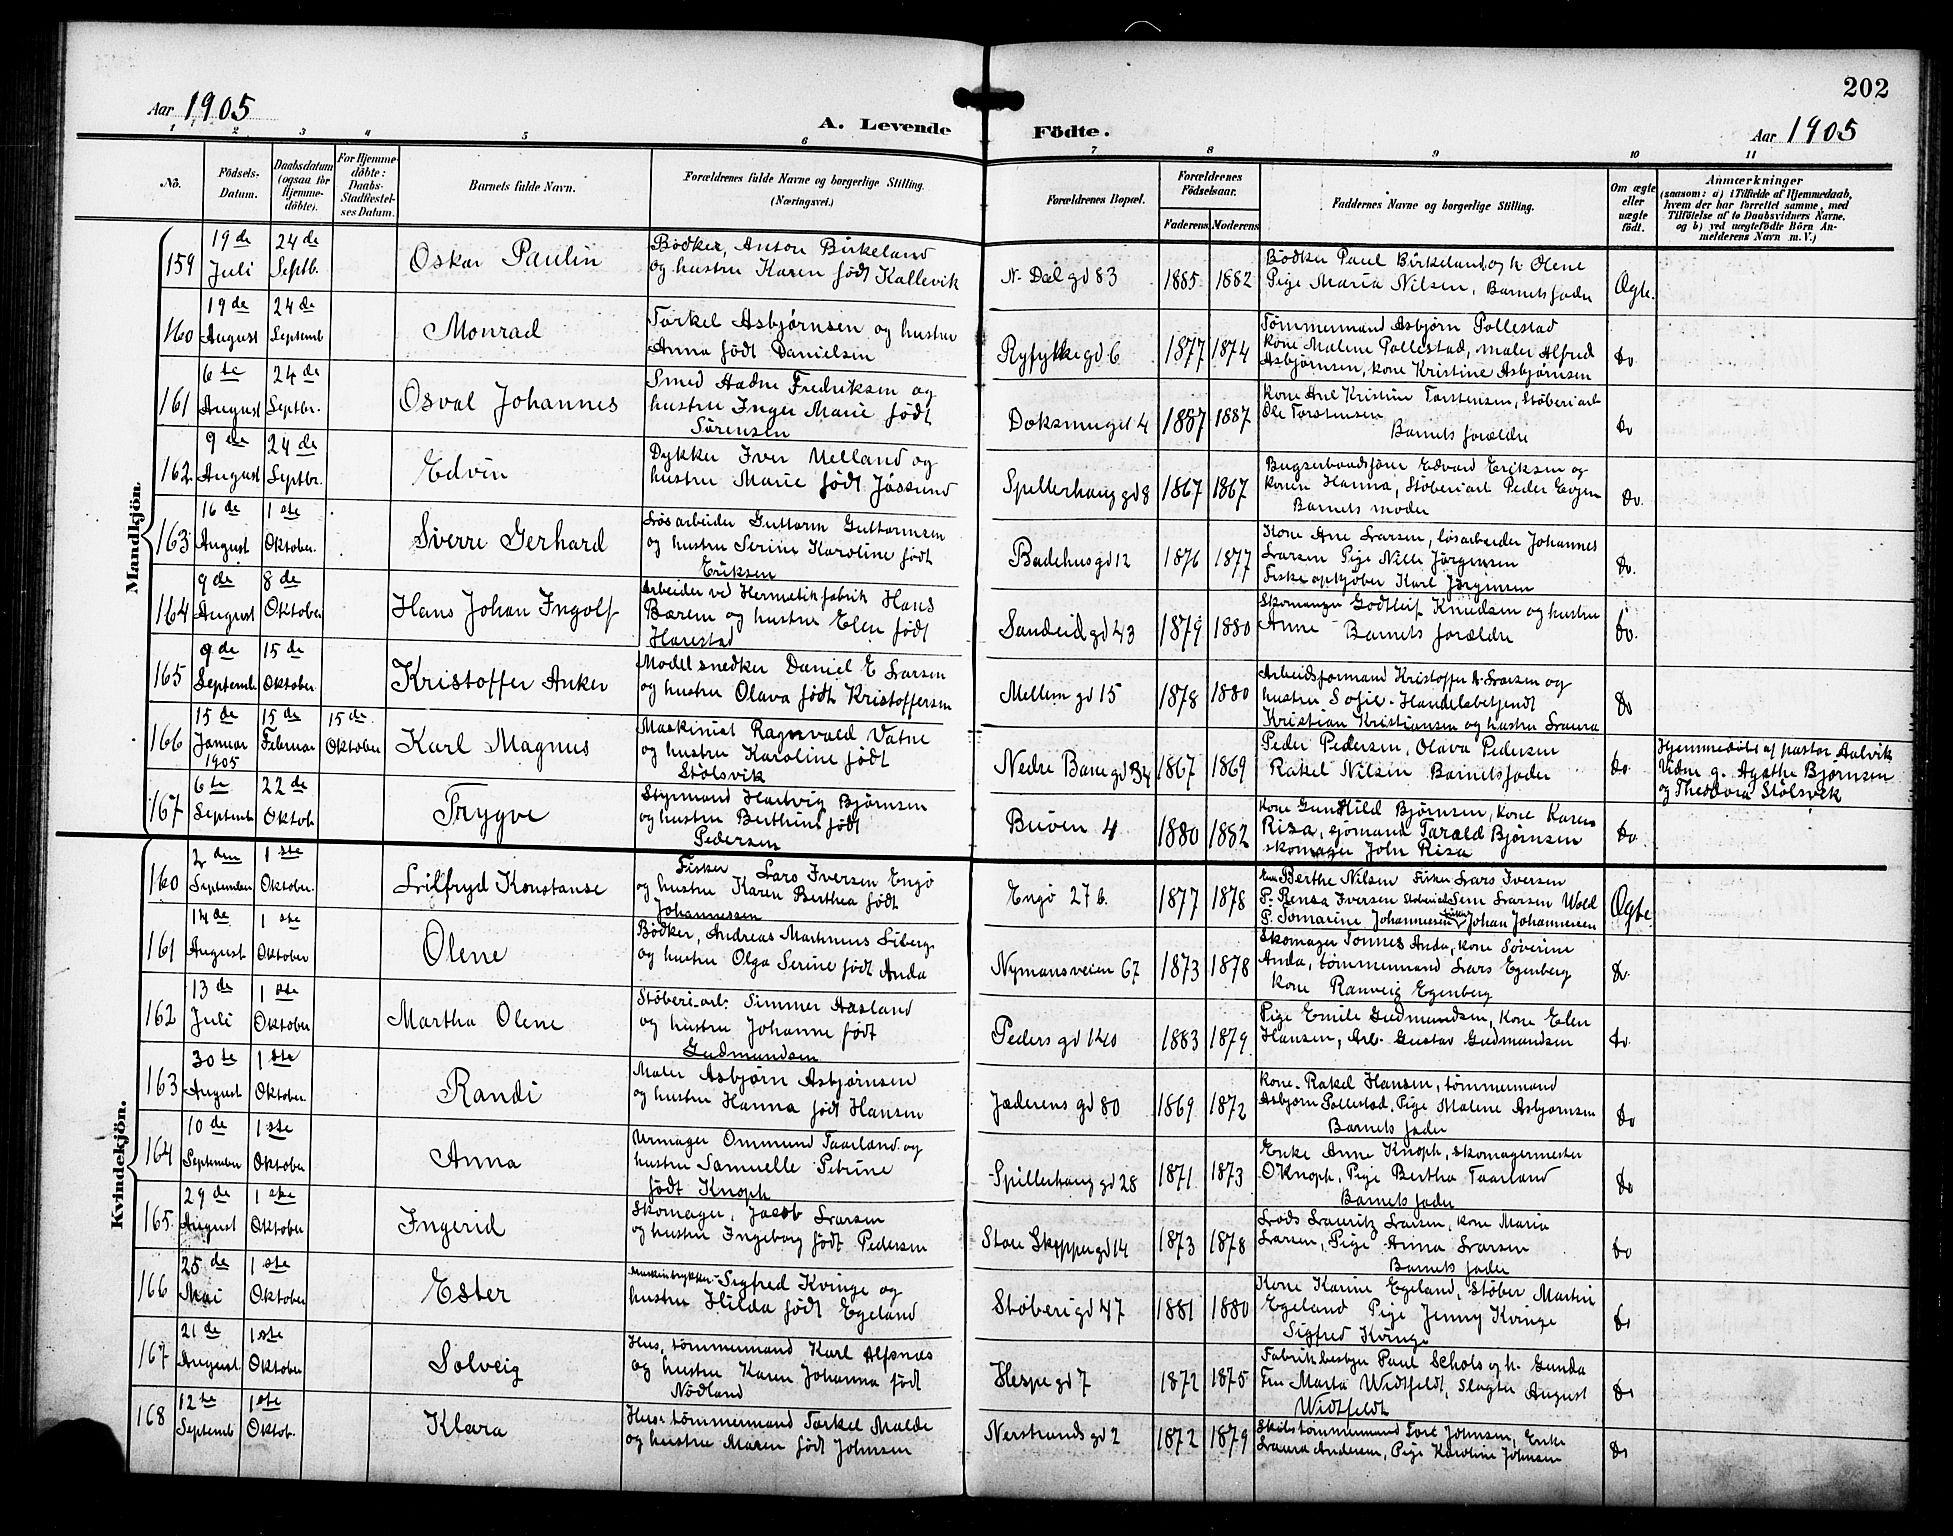 202
Aar 1905
A. Levende Födte.
Aar 1905
1 2 3 4 5 6 7 8 9 10 11
No.
Födsels-Datum.
Daabsdatum (ogsaa for Hjemme-döbte).
For Hjemme-döbte: Daabs-Stadfæstel-ses Datum.
Barnets fulde Navn.
Forældrenes fulde Navne og borgerlige Stilling. (Næringsvei.)
Forældrenes Bopæl.
Forældrenes Födselsaar.
Faderens Moderens
Faddernes Navne og borgerlige Stilling.
Om ægte eller uægte födt.
Anmærkninger
(saasom: a) i Tilfælde af Hjemmedaab, hvem der har forrettet samme, med Tilföielse af to Daabsvidners Navne, og b) ved uægtefödte Börn An-melderens Navn m. V.)
Mandkjön.
159 19de Juli 24de Septb.
Oskar Paulin
Bödker, Anton Birkeland
og hustru Karen født Kallevik
N. Dæl gd 83 1885 1882
Bödker Paul Birkeland og h. Olene
Pige Maria Nilsen, Barnets fader
Ægte.
160 19de August 24de Septemb
Monrad
Torkel Asbjørnsen og hustru
Anna født Danielsen
Ryfylkegd 6 1877 1874
Tømmermand Asbjørn Pollestad
kone Malene Pollestad, maler Alfred
Asbjørnsen, kone Kristine Asbjørnsen
Do
161 6te August 24de Septbr.
Osval Johannes
Smed Hadne Fredriksen og
hustru Inger Marie født
Sørensen
1887 1887
Kristine Torstensen, Støberiarb
Ole Torstensen
Barnets forældre
Do
162 9de August 24de Septbr.
Edvin
Dykker Iver Melland og
hustru Marie født Jøssund
Spilderhaug gd 8 1867 1867
Edvard Eriksen og
konen Hanna, Støberiarb Peder
Barnets moder
Do.
163 16de August 1ste Oktober.
Sverre Gerhard
Løsarbeider Guttorm Guttormsen
og hustru Serine Karoline født
Eriksen
Badehusgd 12 1876 1877
Kone Ane Larsen, løsarbeider Johannes
Larsen Pige Nille Jørgensen
Fiskeopkjøber Karl Jørginsen
Do.
164 9de August 8de Oktober
Hans Johan Ingolf
Arbeider ved Hermetikfabrik Hans
Bærem og hustru Elen født
Harestad
Sandeid gd 43 1879 1880
Skomager Godtleif Knudsen og hustru
Anne - Barnets forældre
Do.
165 9de Septemb 15de Oktober.
Kristoffer Anker
Modelsnedker Daniel E Larsen
og hustru Olava født Kristoffersen
Mellem gd 15 1878 1880
Arbeidsformand Kristoffer A. Larsen og
hustru Sofie - Handelsbetjendt
Kristian Kristiansen og hustru Laura
Do
166 15de Januar 1905 15de Februar 15de Oktober
Karl Magnus
Maskinist Ragnvald Vatne
og hustru Karoline født
Stølsvik
Nedre Bane gd 34 1867 1869
Peder Pedersen, Olava Pedersen
Rakel Nilsen Barnets fader
Do
Hjemmedøbt af pastor Aalvik
Vidne g. Agathe Bjørnsen
og Theodora Stølsvik
167 6te Septemb 22de Oktob.
Trygve
Styrmand Hartvig Bjørnsen
og hustru Berthine født
Pedersen
Buøen 4 1880 1882
Kone Gunhild Bjørnsen, kone Karen
Risa, sjømand Tarald Bjørnsen
skomager John Risa
Do
Kvindekjön.
160 2den September 1ste Oktober.
Lilfryd Konstanse
Fisker Lars Iversen Engø
og hustru Karen Berthea født
Johannessen
Engø 27 b. 1877 1878
Kone Berthe Nilsen Fisker Lars Iversen
P. Rensa Iversen Sem Larsen Wold
P. Tomarine Johannesen Fisker Johan Johannessen
Ægte
161 14de August 1ste Oktober
Olene
Bödker, Andreas Martinius Liberg
og hustru Olga Serine født Anda
Nymansveien 67 1873 1878
Skomager Tonnes Anda, kone Søverine
Anda, tømmermand Lars Egenberg
kone Ranveig Egenberg
Do.
162 13de Juli 1ste Oktober
Martha Olene
Støberi-arb. Simmer Aasland
og hustru Johanne født
Gudmundsen
Peders gd 140 1883 1879
Pige Emile Gudmundsen, kone Elen
Hansen, Arb. Gustav Gudmundsen
Do.
163 30te August 1ste Oktober
Randi
Maler Asbjørn Asbjørnsen
og hustru Hanna født Hansen
Jæderens gd 80 1869 1872
Kone Rakel Hansen, tømmermand
Asbjørn Pollestad, Pige Malene Asbjørnsen
Barnets fader
Do
164 10de September 1ste Oktober
Anna
Urmager Ommund Taarland og
hustru Samuelle Petrine
født Knoph
Spilderhaug gd 28 1871 1873
Enke Anne Knoph, skomagermester
O Knoph, Pige Bertha Taarland
Barnets fader
Do
165. 29de August 1ste Oktober
Ingerid
Skomager, Jacob Larsen
og hustru Ingeborg født Pedersen
Store Skippergd 14 1873 1878
Lods Lauritz Larsen, kone Maria
Larsen, Pige Anna Larsen
Barnets fader
Do
166 25de Mai 1ste Oktober
Ester
Maskintrykker Sigfred Kvinge og
hustru Hilda født Egeland
Støberigd 47 1881 1880
Kone Karine Egeland, Støber Martin
Egeland Pige Jenny Kvinge
Sigfred Kvinge
Do
167 21de August 1ste Oktober
Solveig
Hus, tømmermand Karl Alfsnes
og hustru Karen Johanna født
Nødland
Hespe gd 7 1872 1875
Fabrikbestyr Paul Schols og h. Gunda
Fru Marta Widtfeldt, Slagter August
Widtfeldt
Do
168 12te Septemb 1ste Oktob.
Klara
Hus tømmermand Torkel Malde
og hustru Maren født Johnsen
Nerstrands gd 2 1872 1879
Skibstømmermand Tore Johnsen, Enke
Laura Andersen, Pige Karoline Johnsen
Do